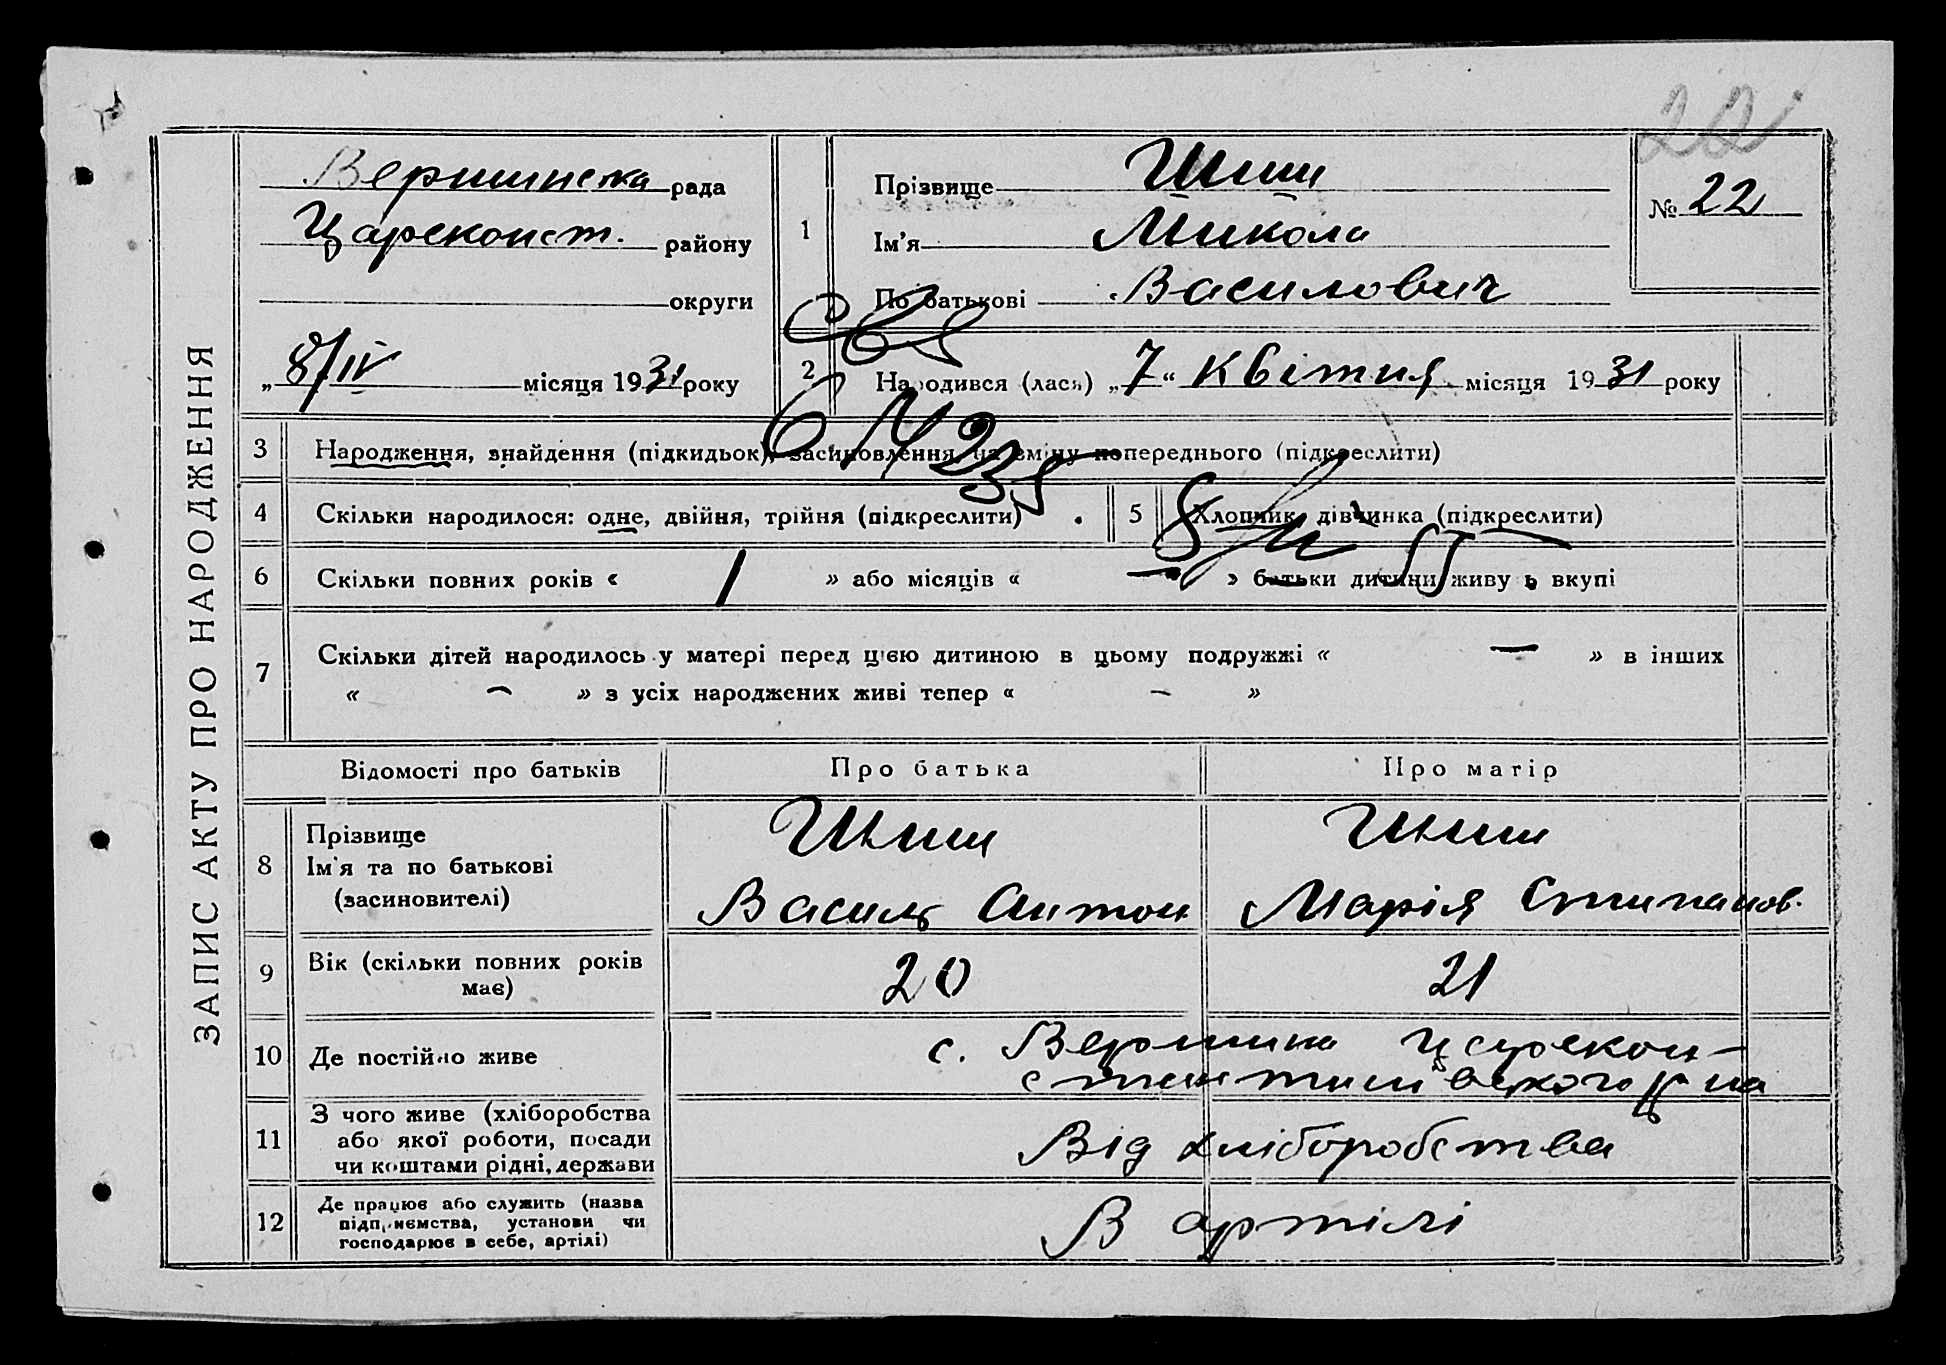 22
ЗАПИС АКТУ ПРО НАРОДЖЕННЯ
Вершинська рада
Царсконст. району
округи
„ 8/IV місяця 1931 року
1
Прізвище Шиш
Ім'я Микола
По батькові Василович
№ 22
2 Народився (лася) „7“ Квітня місяця 1931 року
3 Народження, знайдення (підкидьок), засиновлення, на зміну попереднього (підкреслити)
4 Скільки народилося: одне, двійня, трійня (підкреслити)
5 Хлопчик, дівчинка (підкреслити)
6 Скільки повних років « 1 » або місяців « — » батьки дитини живуть вкупі
7 Скільки дітей народилось у матері перед цією дитиною в цьому подружжі « — » в інших
« — » з усіх народжених живі тепер « — »
Відомості про батьків Про батька Про матір
8 Прізвище
Ім'я та по батькові
(засиновителі)
Шиш
Василь Антон
Шиш
Марія Стипанов.
9 Вік (скільки повних років
має)
20 21
10 Де постійно живе
с. Вершина Царскон-
стантинивского р-на
11 З чого живе (хліборобства
або якої роботи, посади
чи коштами рідні, держави
Від хліборобства
12 Де працює або служить (назва
підприємства, установи чи
господарює в себе, артілі)
В артілі